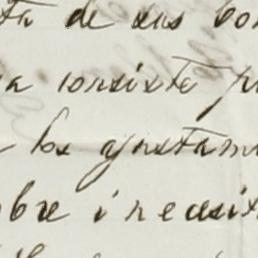 ta de sus bon
a consiste p
los ajustam
obre i necesit